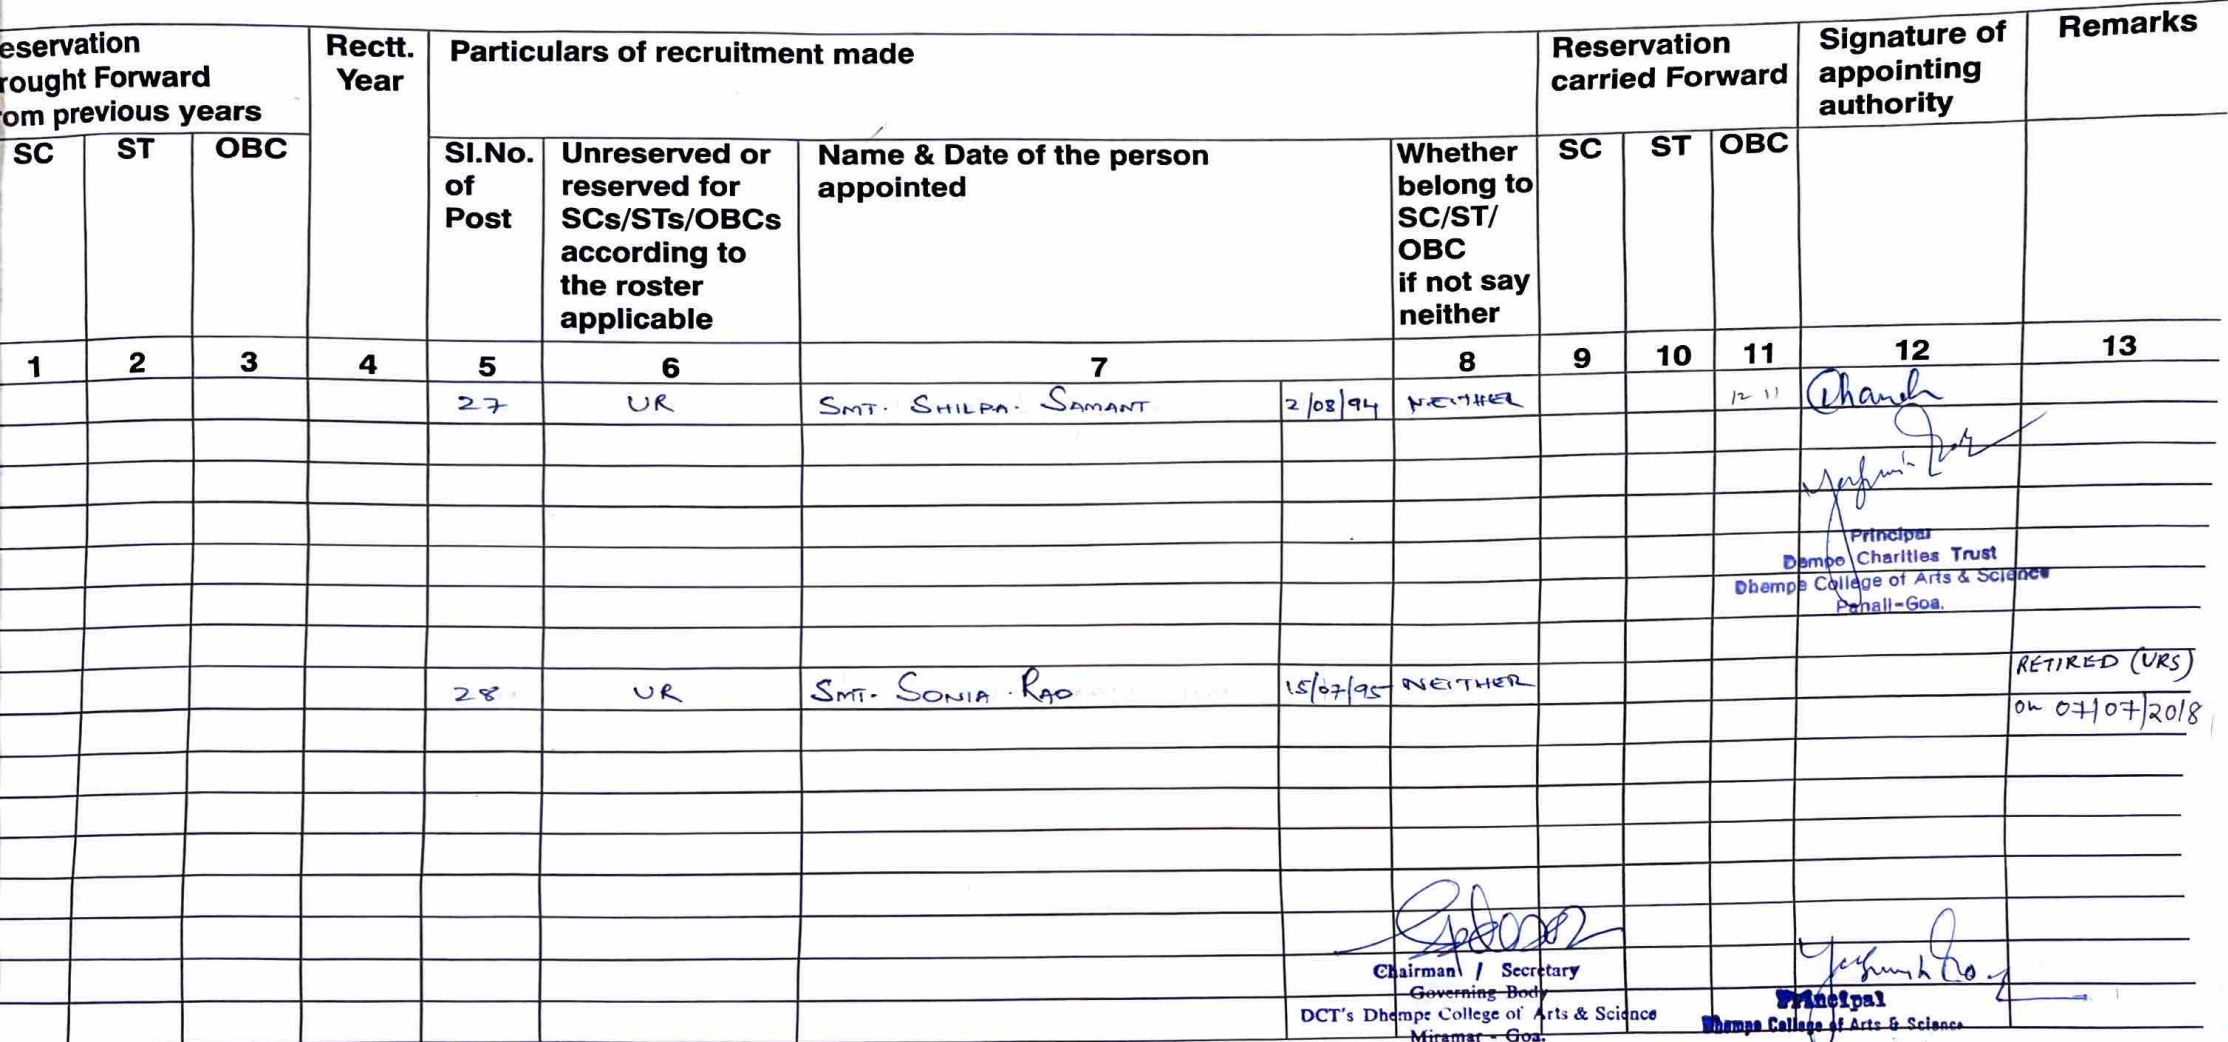 eservation
rought Forward
om previous years
Rectt.
Year
Particulars of recruitment made
Reservation
carried Forward
Signature of
appointing
authority
Remarks
SC ST OBC
Sl.No.
of
Post
Unreserved or
reserved for
SCs/STs/OBCs
according to
the roster
applicable
Name & Date of the person
appointed
Whether
belong to
SC/ST/
OBC
if not say
neither
SC ST OBC
1 2 3 4 5 6 7 8 9 10 11 12 13
27 UR SMT. SHILPA. SAMANT 2/08/94 NEITHER
Principal
Dempo Charities Trust
Dhempe College of Arts & Science
Panaji-Goa.
28 UR SMT. SONIA RAO 15/07/95 NEITHER RETIRED (VRS)
on 07/07/2018
Chairman / Secretary
Governing Body
DCT's Dhempe College of Arts & Science
Miramar - Goa.
Principal
Dhempe College of Arts & Science